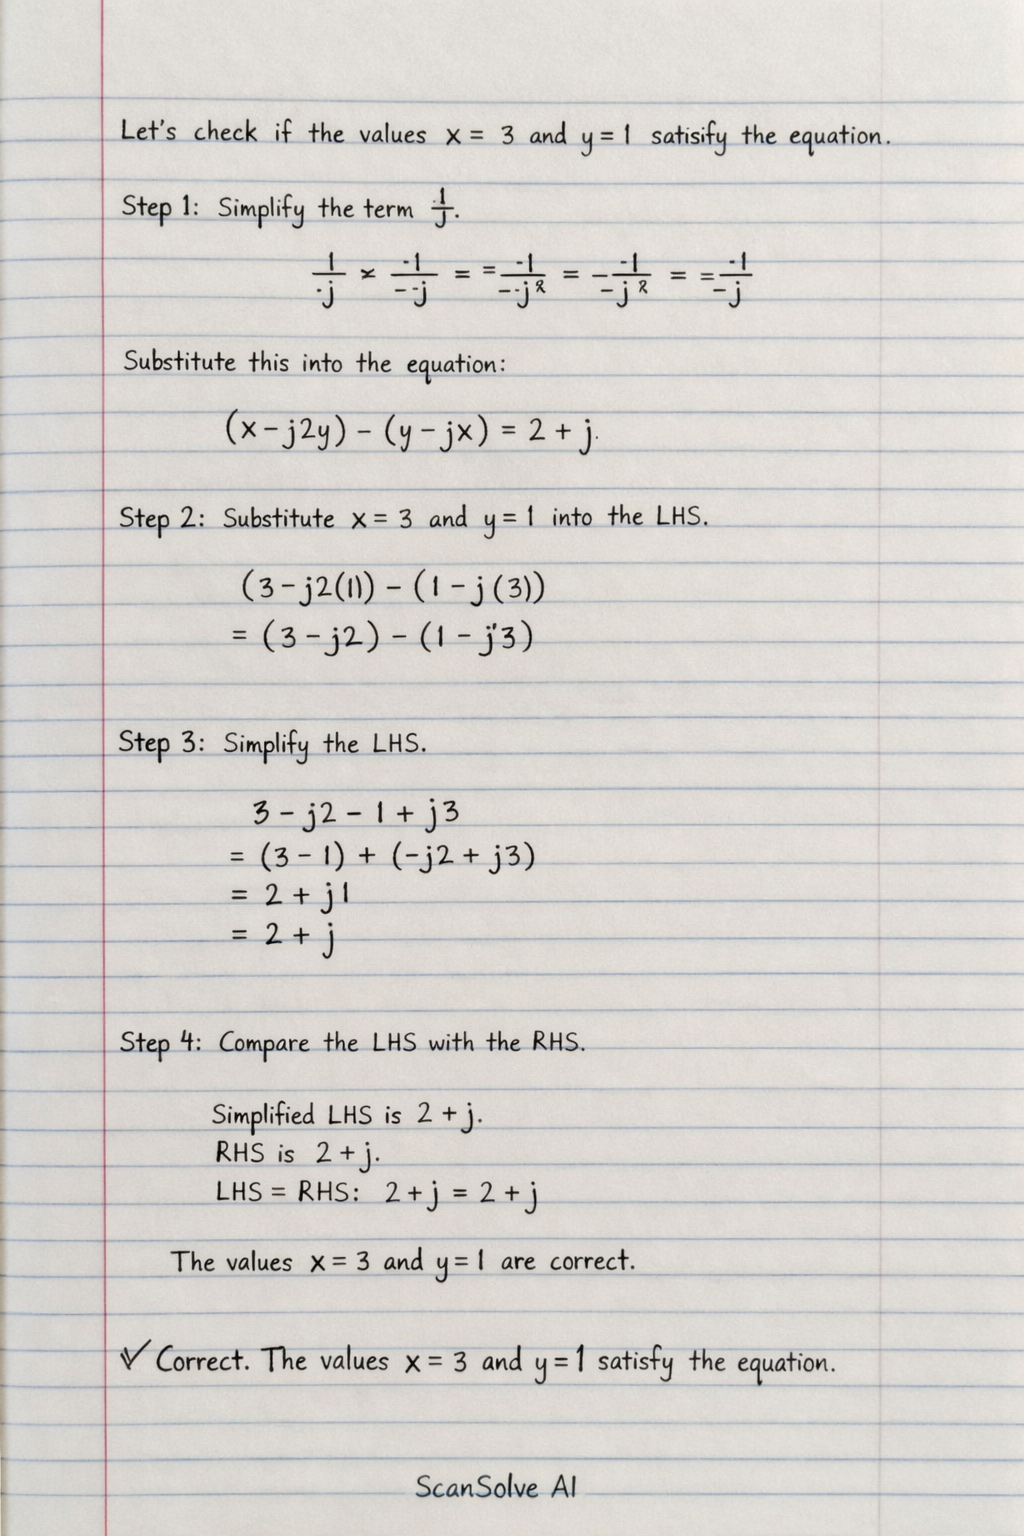 Let's check if the values x = 3 and y = 1 satisify the equation.
Step 1: Simplify the term 1/j.
1/·j × -1/--j = =-1/--j² = -1/-j² = =-1/-j
Substitute this into the equation:
(x - j2y) - (y - jx) = 2 + j.
Step 2: Substitute x = 3 and y = 1 into the LHS.
(3 - j2(1)) - (1 - j(3))
= (3 - j2) - (1 - j'3)
Step 3: Simplify the LHS.
3 - j2 - 1 + j3
= (3 - 1) + (-j2 + j3)
= 2 + j1
= 2 + j
Step 4: Compare the LHS with the RHS.
Simplified LHS is 2 + j.
RHS is 2 + j.
LHS = RHS: 2 + j = 2 + j
The values x = 3 and y = 1 are correct.
✓ Correct. The values x = 3 and y = 1 satisfy the equation.
ScanSolve AI